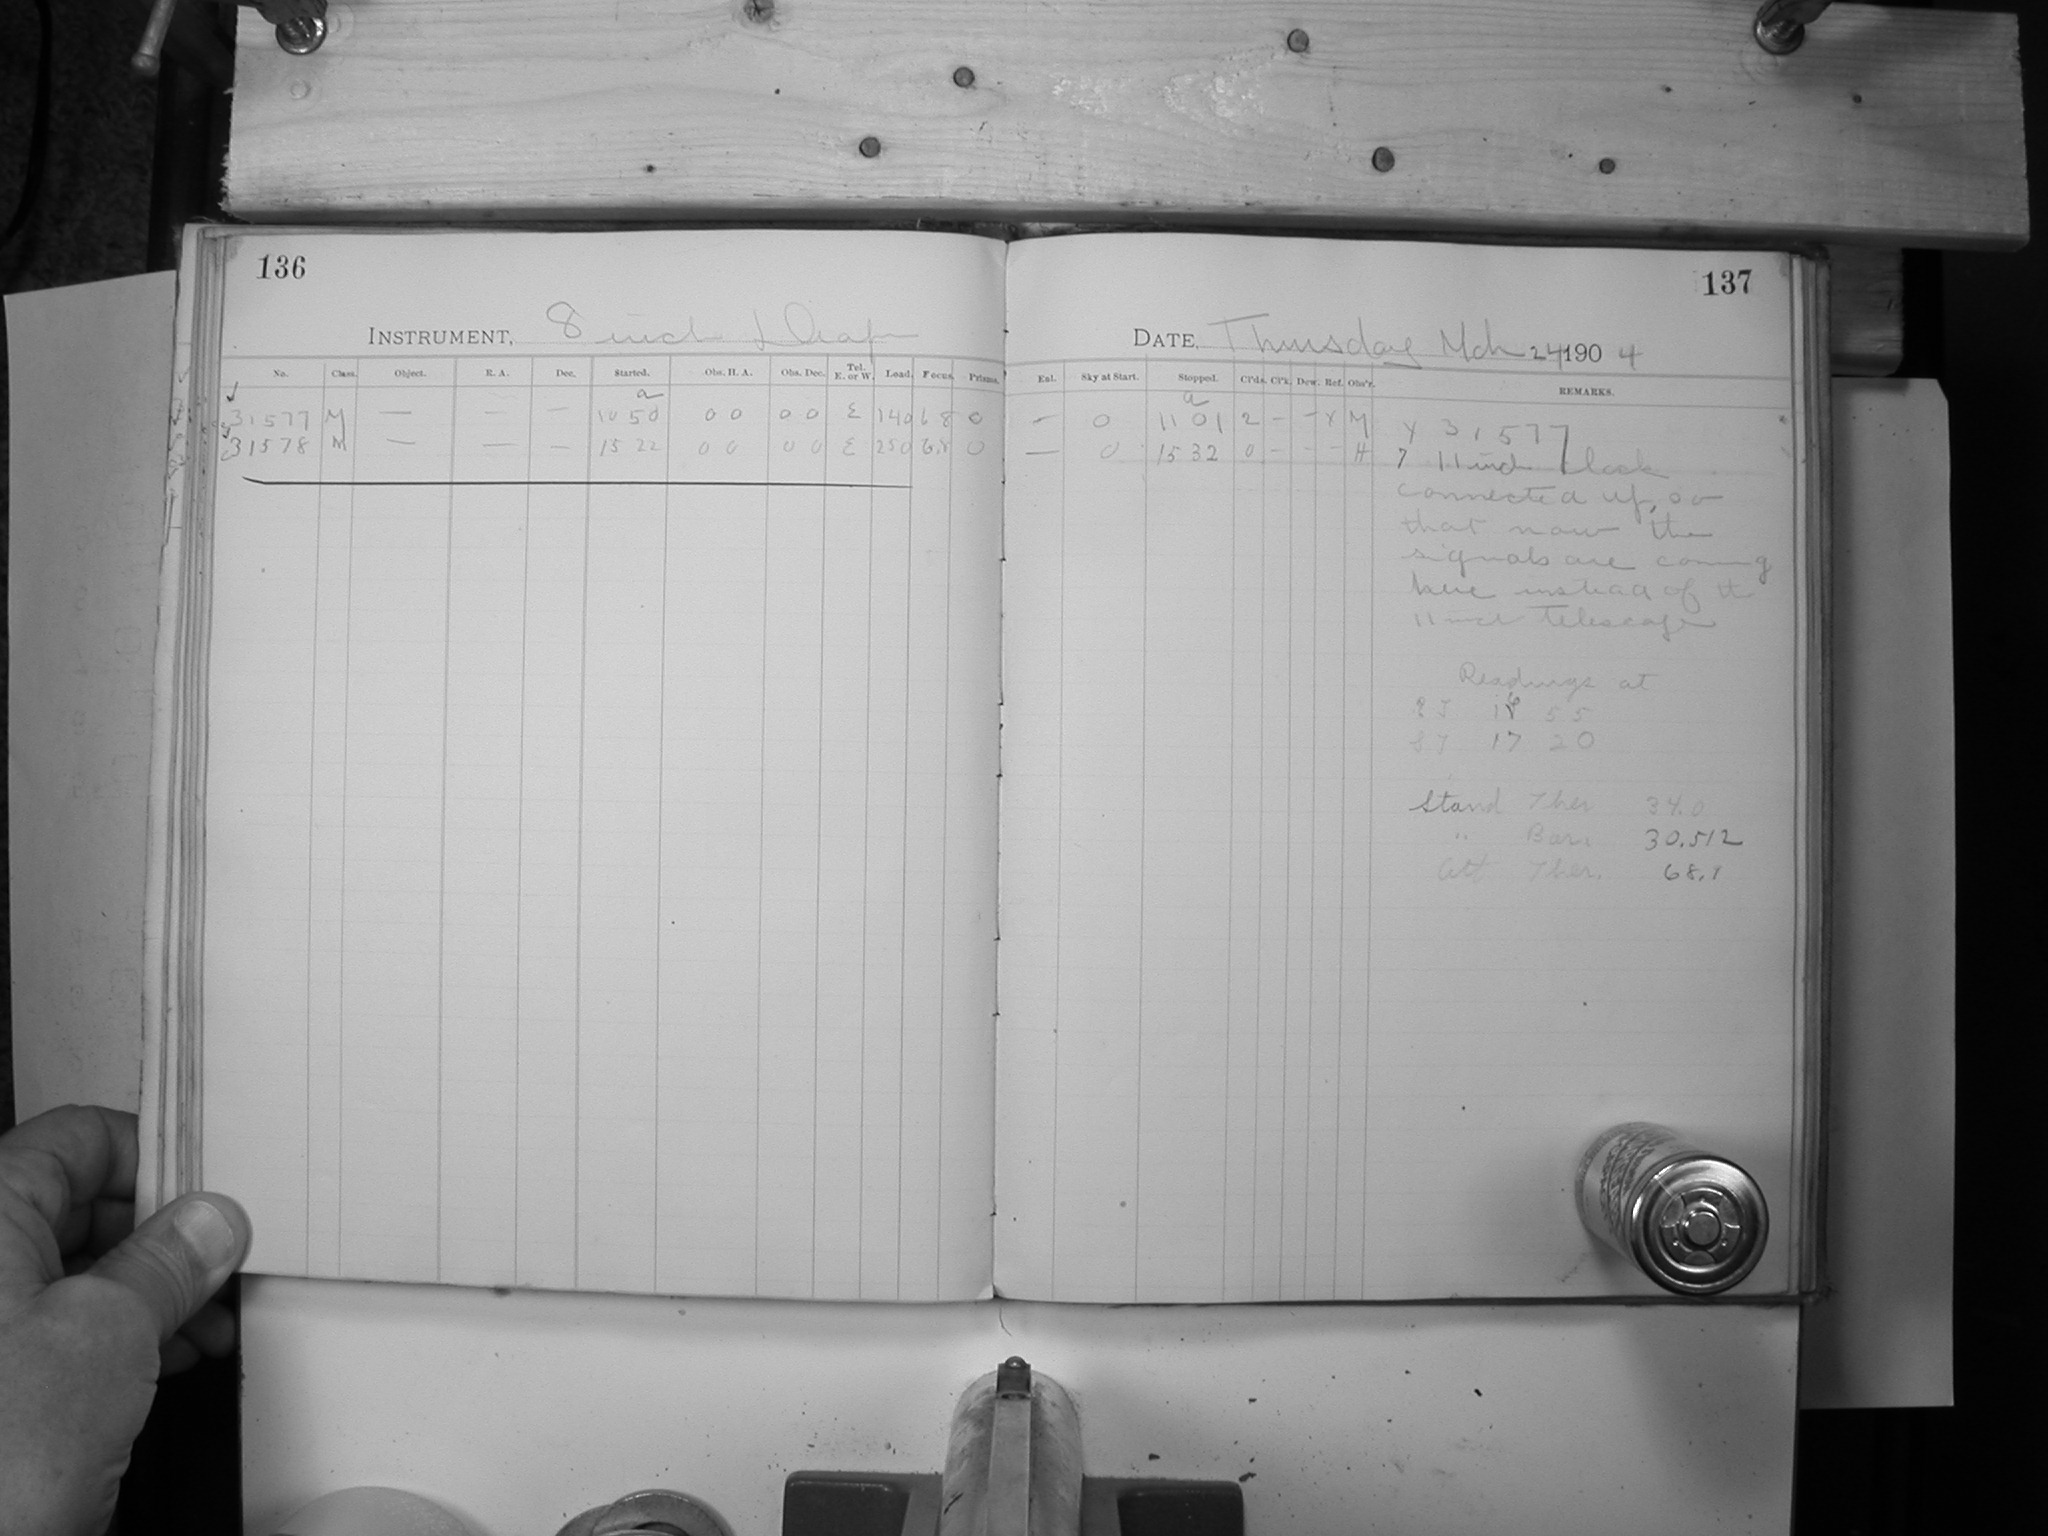 136
137
INSTRUMENT, 8 inch Draper
DATE, Thursday Mch 24 1904
No. Class. Object. R. A. Dec. Started. Obs. H. A. Obs. Dec. Tel. E. or W. Load. Focus. Prisms.
Eal. Sky at Start. Stopped. Cl'ds. Cl'k. Dew. Ref. Obs'r. REMARKS.
a
a
31577 M — — — 10 50 0 0 0 0 E 140 6 8 0
— 0 11 01 2 — — Y M Y 31577
31578 M — — — 15 22 0 0 0 0 E 250 6.8 0
— 0 15 32 0 — — — H 11 inch clock
connected up, so
that now the
signals are coming
here instead of the
11 inch Telescope
Readings at
55
17 20
Stand Ther 34.0
" Bar. 30.512
Att Ther. 68.1